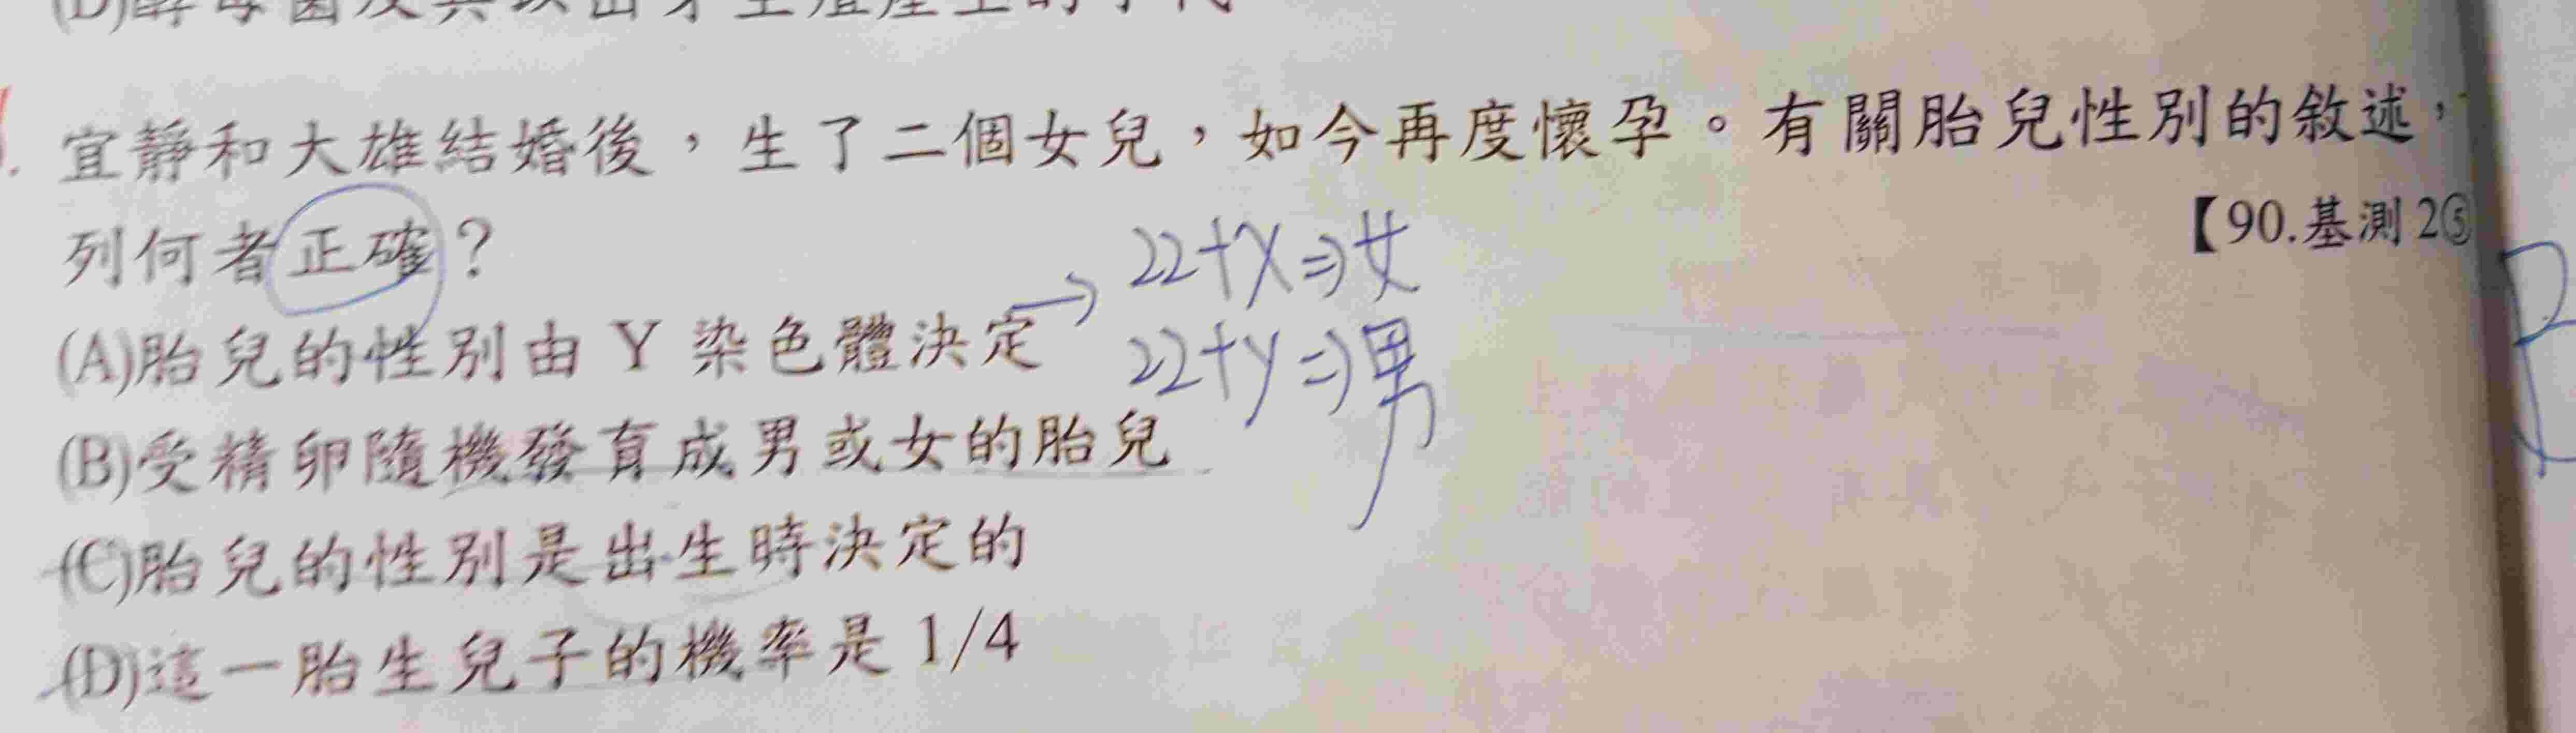 宜靜和大雄結婚後，生了二個女兒，如今再度懷孕。有關胎兒性別的敘述，
列何者正確？
【90.基測2⑤
(A)胎兒的性別由 Y 染色體決定
→ 22+X⇒女
22+y⇒男
(B)受精卵隨機發育成男或女的胎兒
(C)胎兒的性別是出生時決定的
(D)這一胎生兒子的機率是 1/4